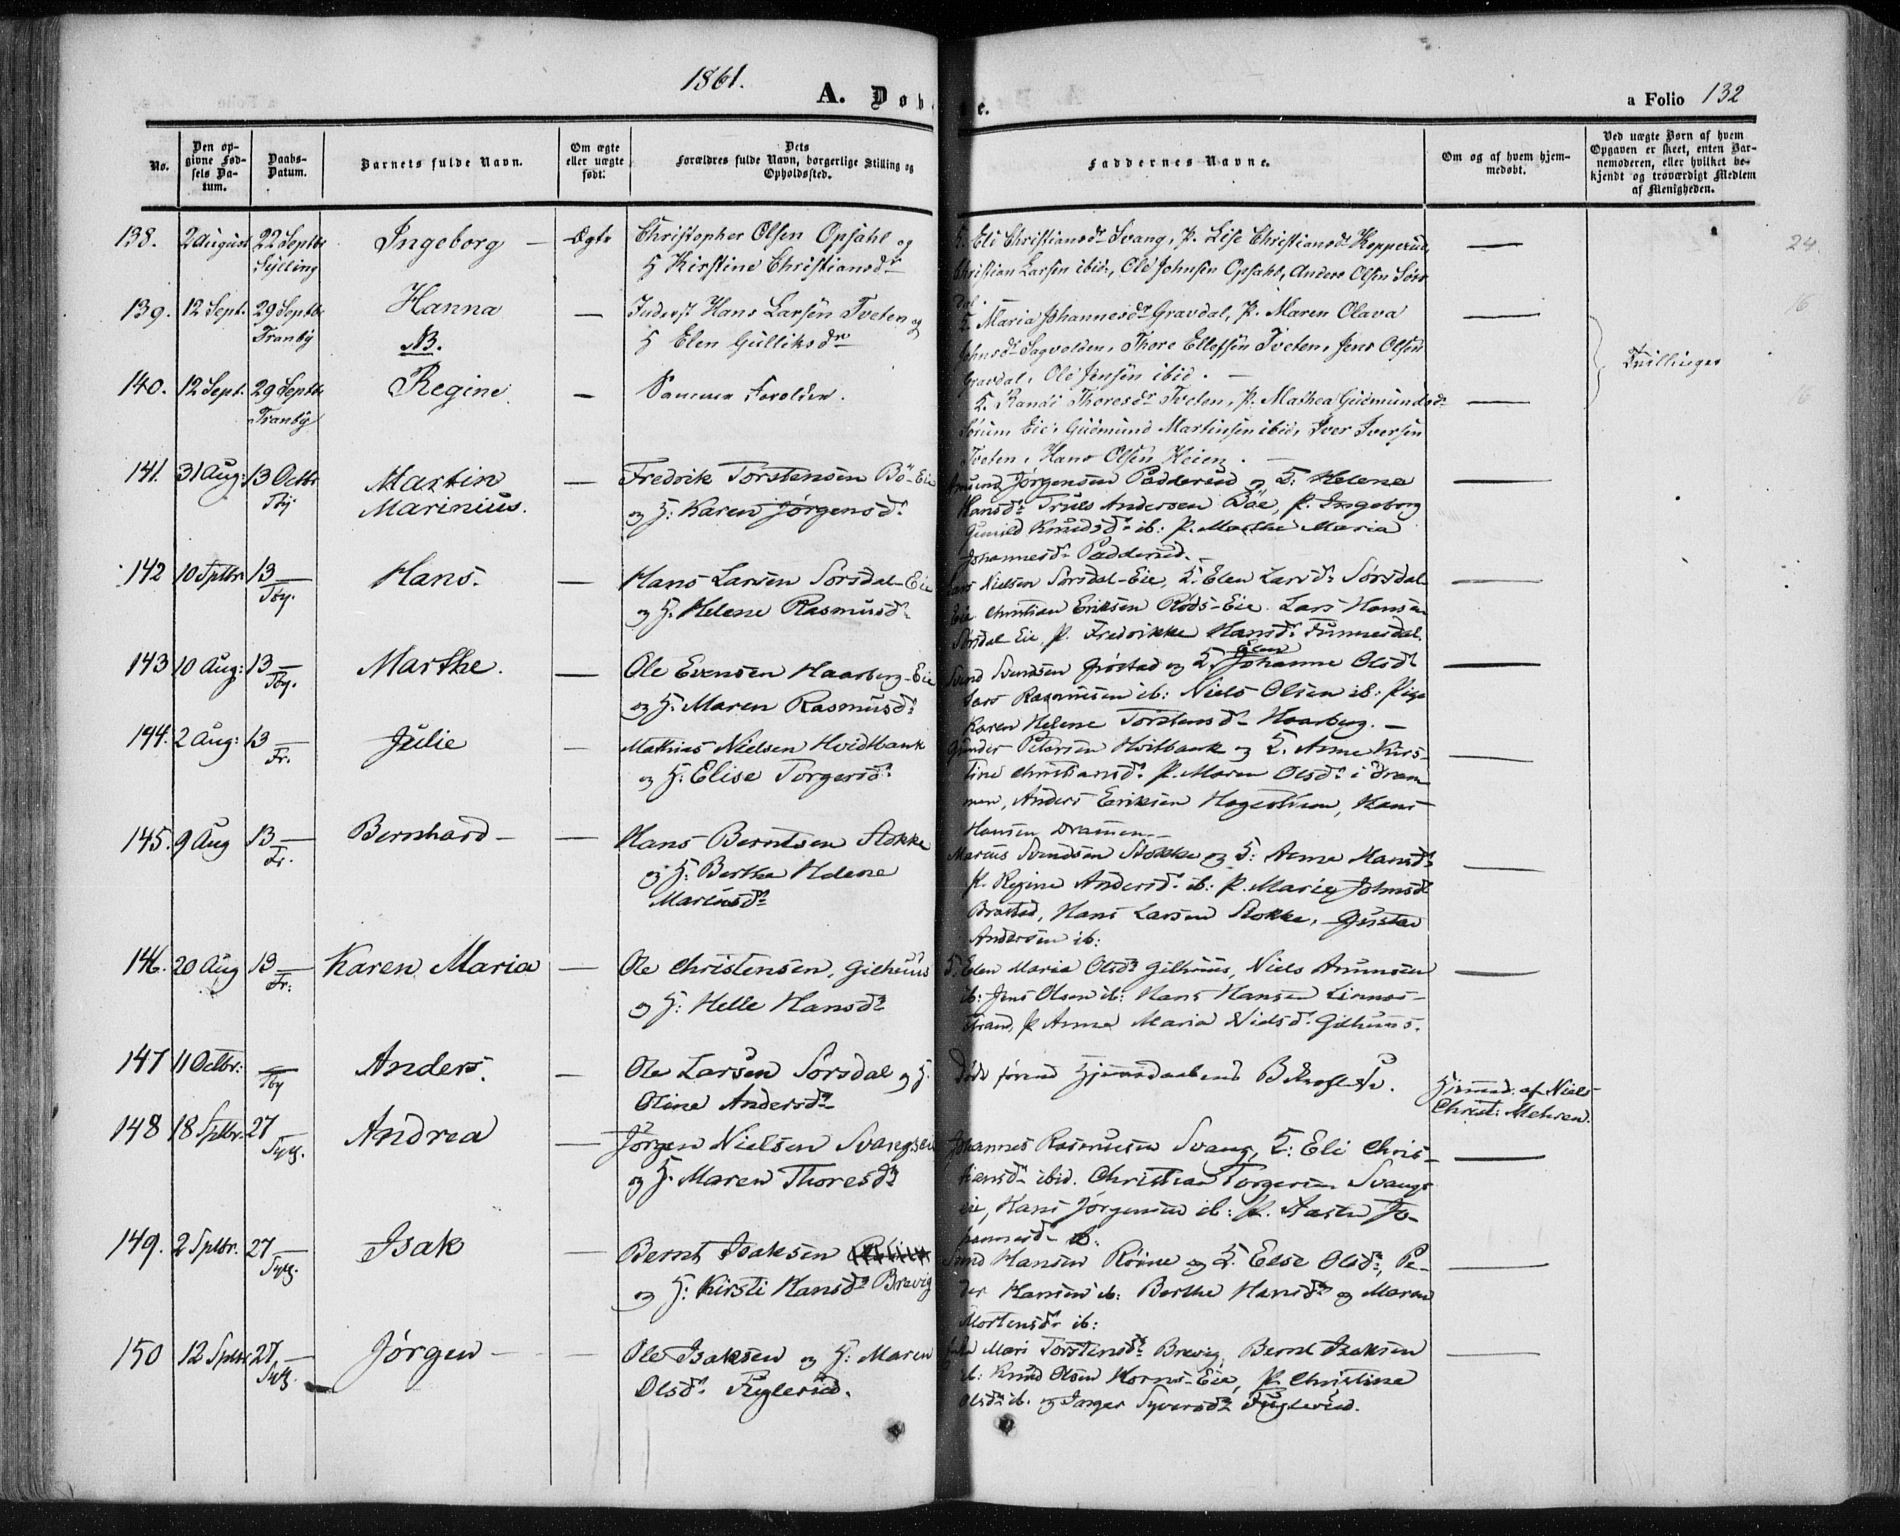 1861.
A. Døbte.
a Folio 132
No.
Den opgivne Fødsels Datum.
Daabs-Datum.
Barnets fulde Navn.
Om ægte eller uægte født.
Dets Forældres fulde Navn, borgerlige Stilling og Opholdssted.
Faddernes Navne.
Om og af hvem hjemmedøbt.
Ved uægte Børn af hvem Opgaven er skeet, enten Barnemoderen, eller hvilket bekjendt og troværdigt Medlem af Menigheden.
138. 2 August 22 Septbr Ingeborg – Ægte Christopher Olsen Opsahl og
Sylling H Kirstine Christiansdr
K. Eli Christiansdr Svang, P. Lise Christiansdr Kopperud,
Christian Larsen ibid, Ole Johnsen Opsahl, Anders Olsen Sørs
dal. 24
139. 12 Sept. 29 Septbr Hanna – Inderst Hans Larsen Tveten og
Tranby NB. H Elen Gulliksdr
K. Maria Johannesdr Gravdal, P. Maren Olava
Johnsdr Sagvolden, Thore Ellefsen Tveten, Jens Olsen
Gravdal, Ole Jensen ibid. – 16
Tvillinger
140. 12 Sept. 29 Septbr Regine – Samme Forældre.
Tranby
K. Randi Thoresdr Tveten, P. Mathea Gudmundsdr
Sørum Eie, Gudmund Martinsen ibid, Iver Iversen
Tveten, Hans Olsen Heien. – 6
141. 31 Aug: 13 Octbr Martin Fredrik Torstensen Bö-Eie
Tby Marinius. og H: Karen Jørgensdr
Jørgensen Padderud og K: Helene
Hansdr Truls Andersen Böe, P. Ingeborg
Gunild Knudsdr ib: P. Marthe Maria
Johannesdr Padderud.
142 10 Sptbr 13 – Hans. – Hans Larsen Sørsdal-Eie
Tby. og H. Helene Rasmusdr
Lars Nielsen Sørsdal-Eie, K. Elen Larsdr Sørsdal
Eie Christian Eriksen Røds-Eie. Lars Hansen
Sørsdal Eie, P. Fredrikke Hansdr Funnesdal.
143 10 Aug: 13 – Marthe. – Ole Evensen Haarberg-Eie
Tby. og H. Maren Rasmusdr
Svend Svendsen Grøstad og K. Elen Johanne Olsdr
Lars Rasmussen ib: Niels Olsen ib: Pige
Karen Helene Torstensdr Haarberg. –
144. 2 Aug: 13 – Julie – Mathias Nielsen Hvidtbank
Fr. og H: Elise Torgersdr
Gunder Petersen Hvitbank og K. Anne Kirs-
tine Christiansdr P. Maren Olsdr i Dram
men, Anders Eriksen Hagesthuen, Hans
Hansen Dramen. –
145. 9 Aug 13 – Bernhard – – Hans Berntsen Stokke
Fr. og H. Berthe Helene
Mariusdr
Marius Svendsen Stokke og K: Anne Hansdr
P. Regine Andersdr ib: P. Marie Johnsdr
Brastad, Hans Larsen Stokke, Gustav
Andersen ib:
146. 20 Aug 13 – Karen Maria – Ole Christensen, Gilhuus
Fr: og H: Helle Hansdr
K. Elen Maria Olsdr Gilhuus, Niels Amunsen
ib: Jens Olsen ib: Hans Hansen Linnes-
strand, P. Anne Maria Nielsdr Gilhuus.
147 11 Octbr: Anders. – Ole Larsen Sørsdal og H.
Tby Oline Andersdr
Døde førend Hjemmedaabens Bekræftelse.
Hjemmd. af Niels
Christ: Mehren.
148 18 Sptbr. 27 – Andrea – Jørgen Nielsen Svangseie
Sylg. og H. Maren Thoresdr
Johannes Rasmusen Svang, K: Eli Chris-
tiansdr ibid. Christian Torgersen Svangs
eie, Hans Jørgensen ib: P. Aaste Jo-
hannesdr ib.
149. 2 Sptbr. 27 – Isak – Bernt Isaksen
Sylg. og H: Kirsti Hansdr Brevig
Hansen Röine og K. Else Olsdr, Pe-
der Hansen ib: Berthe Hansdr og Maren
Mortensdr ib:
150 12 Sptbr 27 – Jørgen – – Ole Isaksen og H: Maren
Sylg. Olsdr Fuglerud.
Mari Torstensdr Brevig, Bernt Isaksen
ib: Knud Olsen Horns-Eie, P. Christine
Olsdr ib. og Jørgen Syversdr Fuglerud.